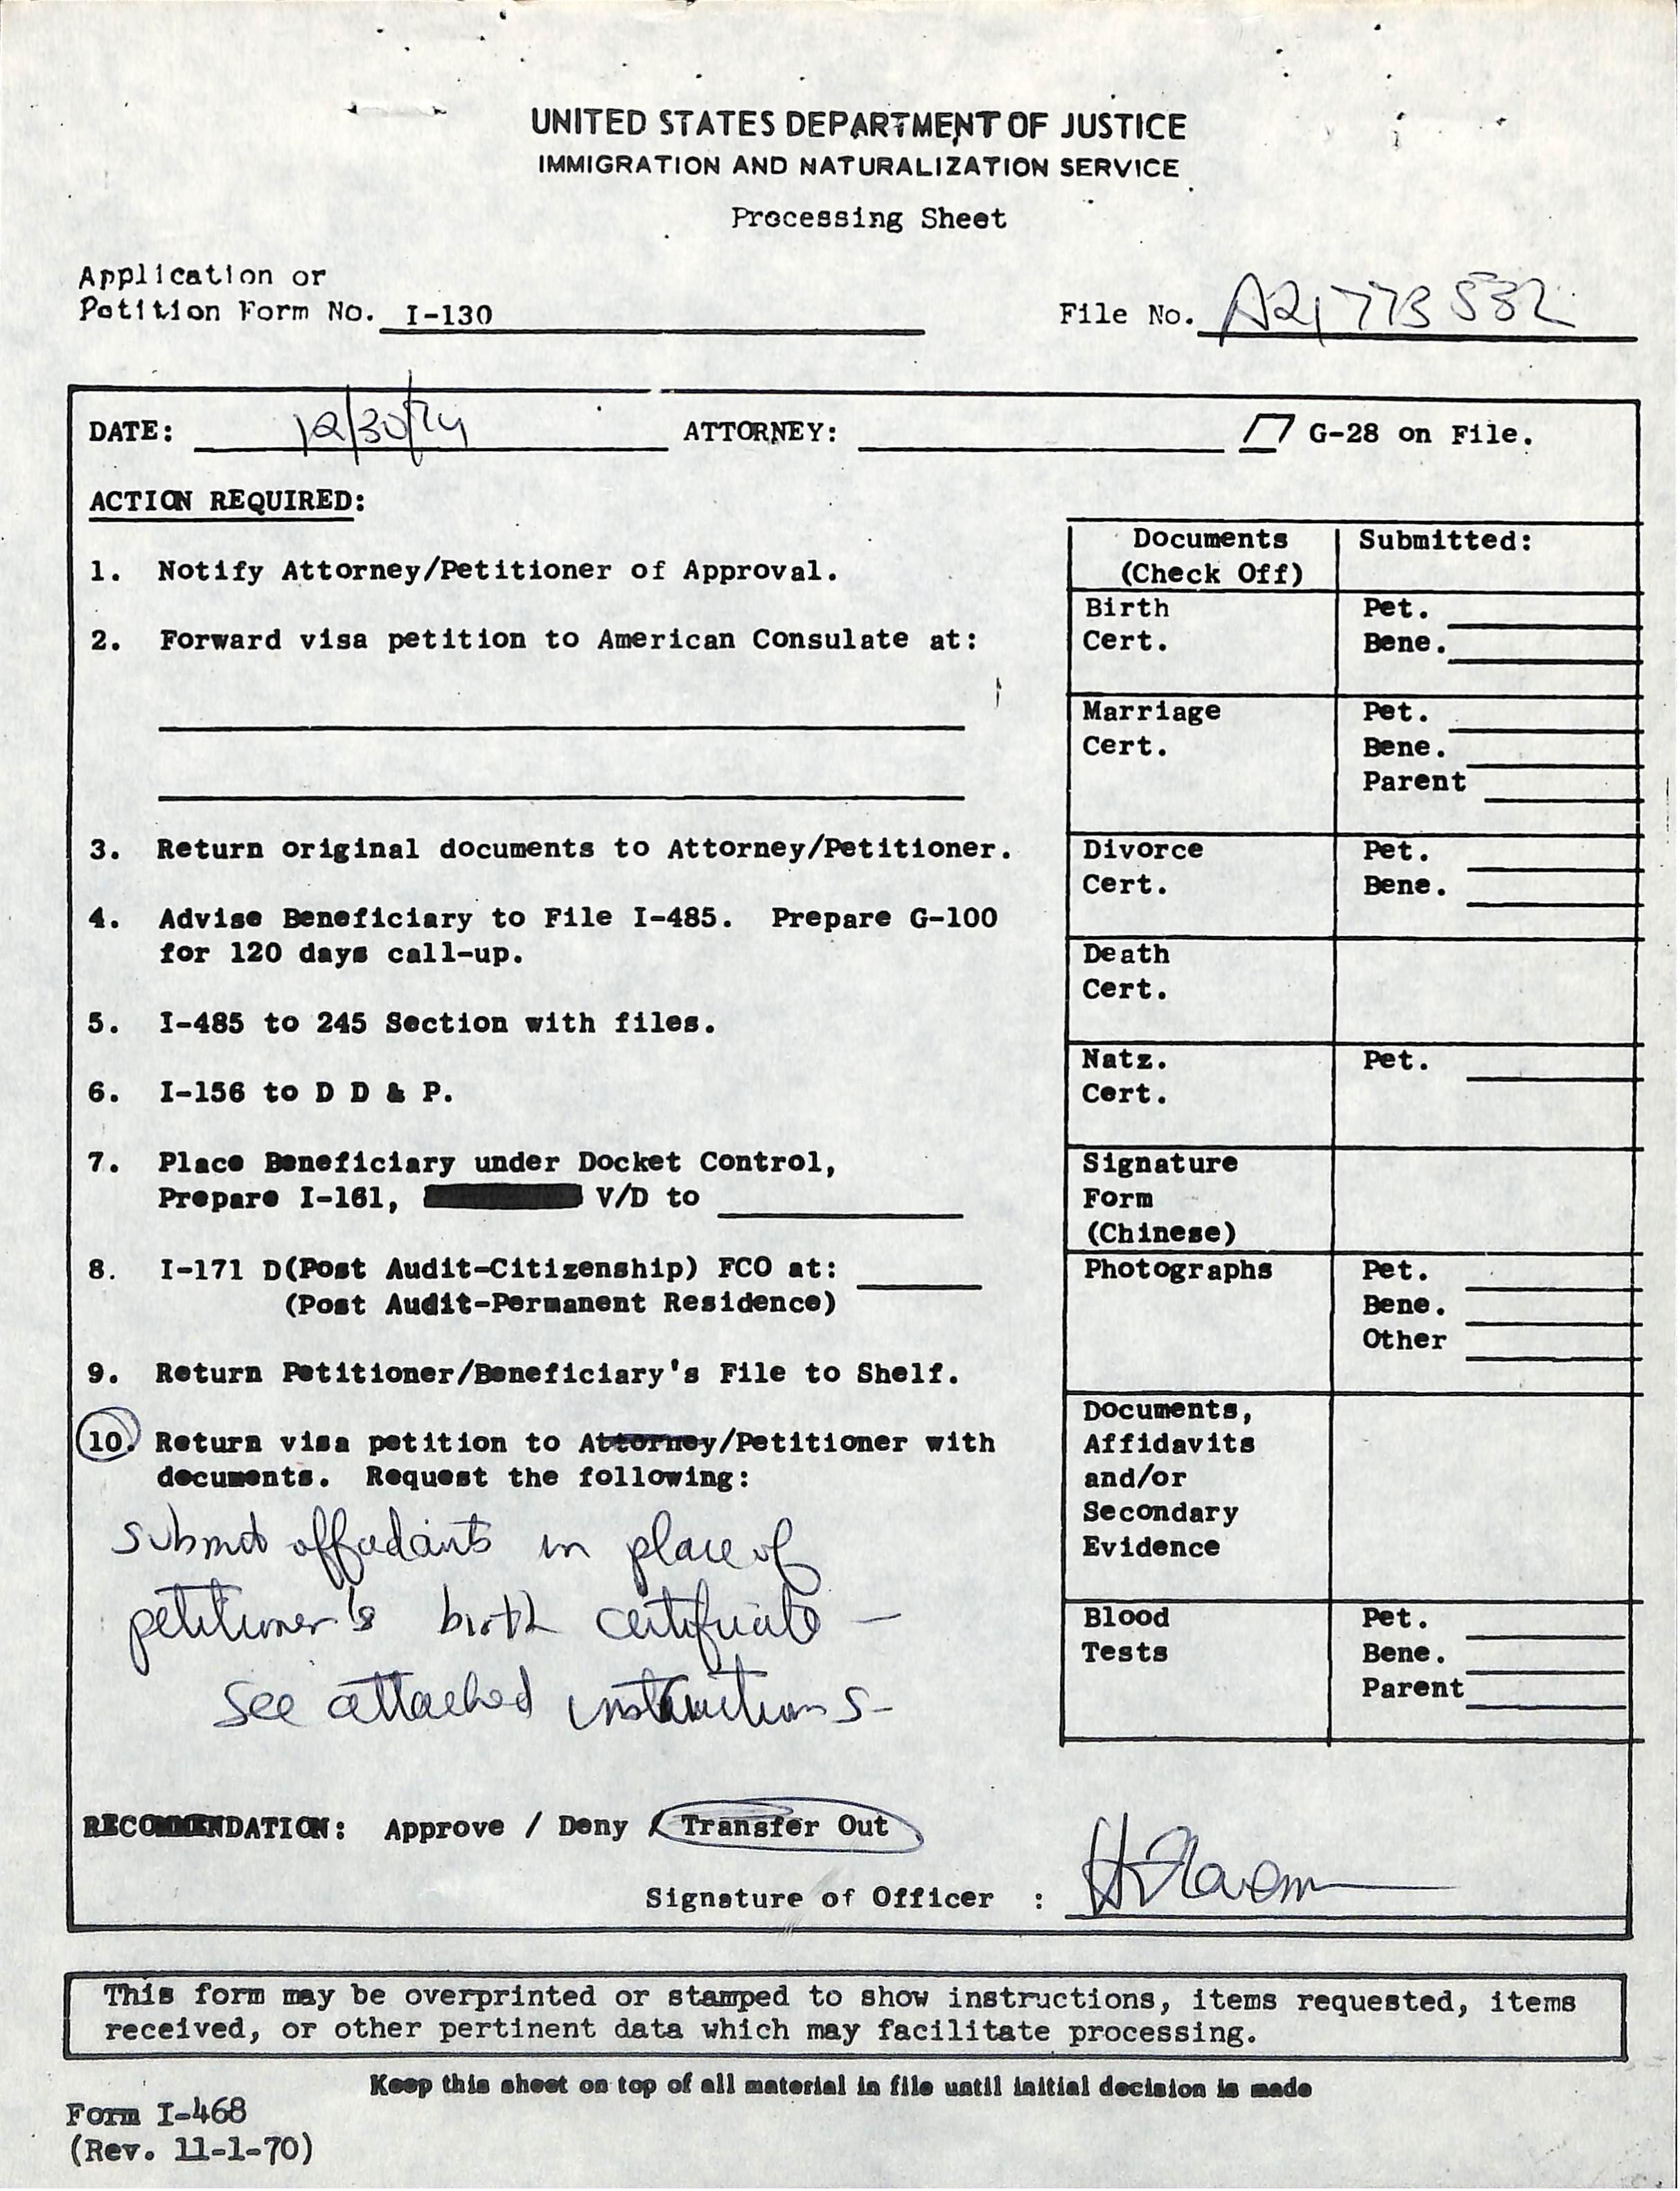 UNITED STATES DEPARTMENT OF JUSTICE
IMMIGRATION AND NATURALIZATION SERVICE
Processing Sheet
Application or
Petition Form No. I-130
File No. A21 773 532
DATE: 12/30/74 ATTORNEY: G-28 on File.
ACTION REQUIRED:
1. Notify Attorney/Petitioner of Approval.
2. Forward visa petition to American Consulate at:
3. Return original documents to Attorney/Petitioner.
4. Advise Beneficiary to File I-485. Prepare G-100
for 120 days call-up.
5. I-485 to 245 Section with files.
6. I-156 to D D & P.
7. Place Beneficiary under Docket Control,
Prepare I-161, V/D to
8. I-171 D(Post Audit-Citizenship) FCO at:
(Post Audit-Permanent Residence)
9. Return Petitioner/Beneficiary's File to Shelf.
10. Return visa petition to Attorney/Petitioner with
documents. Request the following:
Submit affidavits in place of
petitioner's birth certificate —
see attached instructions-
Documents
(Check Off)
Submitted:
Birth Pet.
Cert. Bene.
Marriage Pet.
Cert. Bene.
Parent
Divorce Pet.
Cert. Bene.
Death
Cert.
Natz. Pet.
Cert.
Signature
Form
(Chinese)
Photographs Pet.
Bene.
Other
Documents,
Affidavits
and/or
Secondary
Evidence
Blood Pet.
Tests Bene.
Parent
RECOMMENDATION: Approve / Deny / Transfer Out
Signature of Officer :
This form may be overprinted or stamped to show instructions, items requested, items
received, or other pertinent data which may facilitate processing.
Keep this sheet on top of all material in file until initial decision is made
Form I-468
(Rev. 11-1-70)